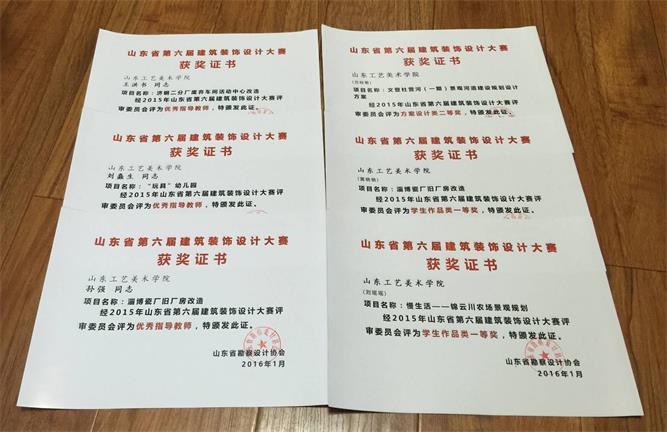 山东省第六届建筑装饰设计大赛
获奖证书
山东工艺美术学院
王洪书 同志
项目名称：济钢二分厂废弃车间活动中心改造
经2015年山东省第六届建筑装饰设计大赛评
审委员会评为优秀指导教师，特颁发此证。
山东省第六届建筑装饰设计大赛
获奖证书
山东工艺美术学院
刘鑫生 同志
项目名称：“玩具”幼儿园
经2015年山东省第六届建筑装饰设计大赛评
审委员会评为优秀指导教师，特颁发此证。
山东省第六届建筑装饰设计大赛
获奖证书
山东工艺美术学院
孙强 同志
项目名称：淄博瓷厂旧厂房改造
经2015年山东省第六届建筑装饰设计大赛评
审委员会评为优秀指导教师，特颁发此证。
山东省勘察设计协会
2016年1月
山东省第六届建筑装饰设计大赛
获奖证书
山东工艺美术学院
项目名称：文登杜营河（一期）景观河道建设规划设计
方案
经2015年山东省第六届建筑装饰设计大赛评
审委员会评为方案设计类二等奖，特颁发此证。
山东省第六届建筑装饰设计大赛
获奖证书
山东工艺美术学院
项目名称：淄博瓷厂旧厂房改造
经2015年山东省第六届建筑装饰设计大赛评
审委员会评为学生作品类一等奖，特颁发此证。
山东省第六届建筑装饰设计大赛
获奖证书
山东工艺美术学院
（刘瑶瑶）
项目名称：慢生活——锦云川农场景观规划
经2015年山东省第六届建筑装饰设计大赛评
审委员会评为学生作品类一等奖，特颁发此证。
山东省勘察设计协会
2016年1月